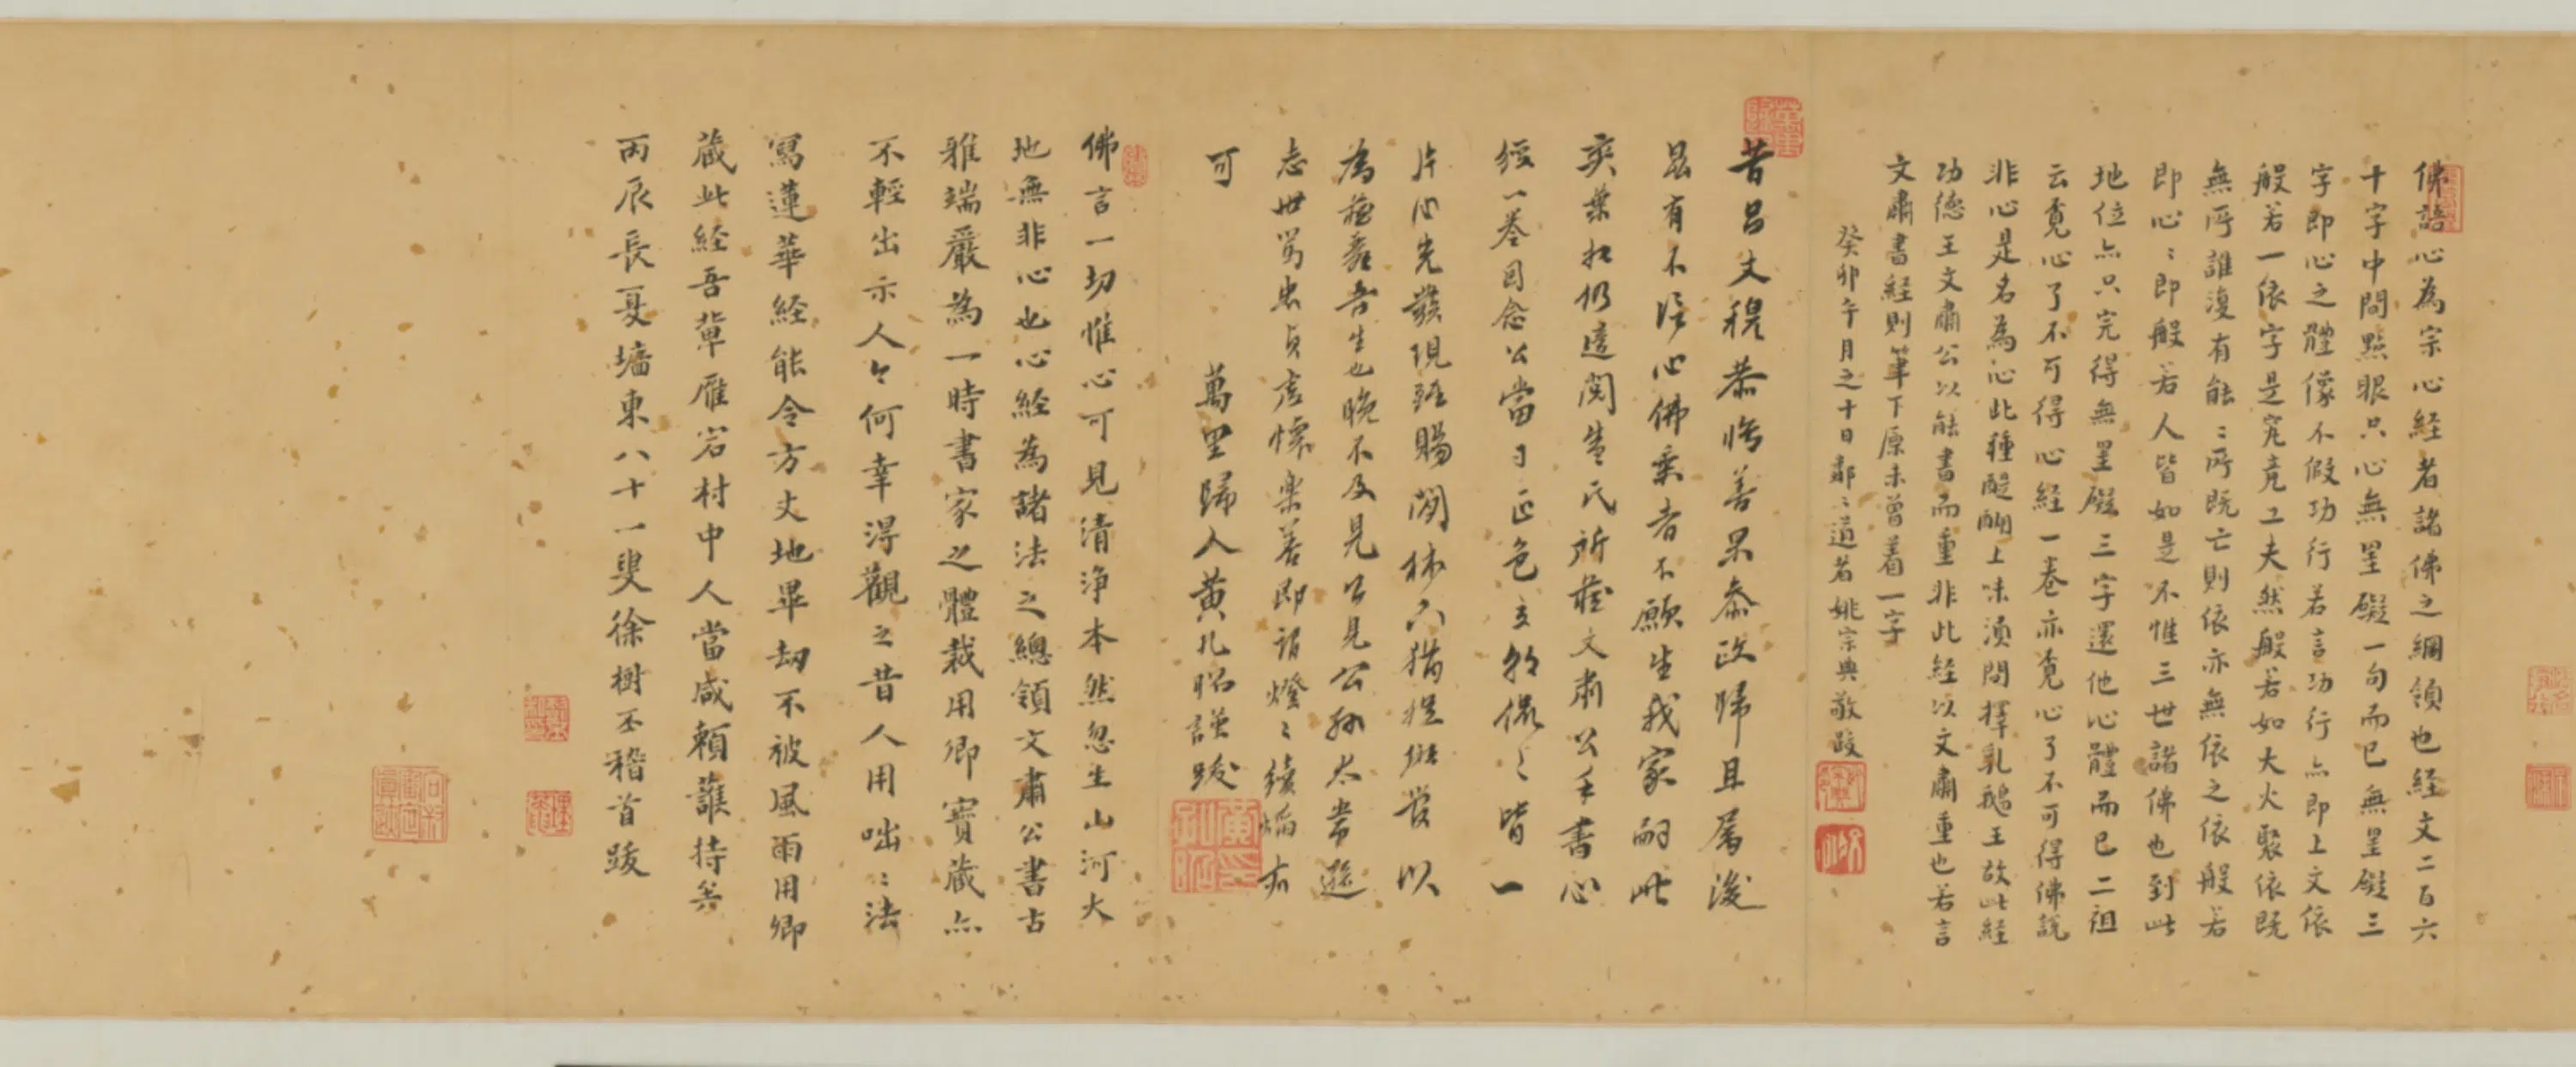 佛語心為宗心經者諸佛之綱領也経文二百六
十字中間點眼只心無罣礙一句而已無罣礙三
字即心之體像不假功行若言功行亦即上文依
般若一依字是究竟工夫然般若如大火聚依既
無所誰復有能〻所既亡則依亦無依之依般若
即心〻即般若人皆如是不惟三世諸佛也到此
地位亦只完得無罣礙三字還他心體而已二祖
云覓心了不可得心経一卷亦覓心了不可得佛說
非心是名為心此種醍醐上味須問擇乳鵝王故此経
功德王文肅公以能書而重非此経以文肅重也若言
文肅書経則筆下原未曾着一字
癸卯午月之十日鄰〻道者姚宗典敬跋
昔呂文穆恭惟善果泰政歸且屬後
昆有不信心佛乘者不願生我家嗣此
奕葉相仍遠閱生氏所藏文肅公手書心
経一卷因念公當日正色立朝侃〻皆一
片心光發現雖賜閒林下猶提撕發以
為磨礱吾生也晚不及見公見公孫太常遜
志世篤忠貞虛懷樂善即謂燈〻續焰亦
可
萬里歸人黃孔昭謹跋
佛言一切惟心可見清淨本然忽生山河大
地無非心也心経為諸法之總領文肅公書古
雅端嚴為一時書家之體裁用卿寶藏亦
不輕出示人今何幸得觀之昔人用咄〻法
寫蓮華経能令方丈地畢劫不被風雨用卿
藏此経吾輩雁宕村中人當咸賴護持矣
丙辰長夏墻東八十一叟徐樹丕稽首跋